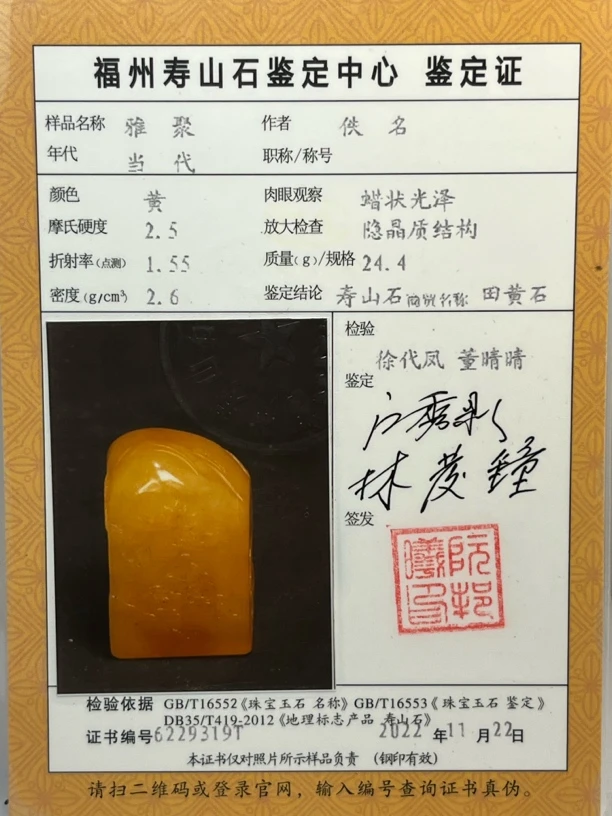 福州寿山石鉴定中心 鉴定证
样品名称 雅聚 作者 佚名
年代 当代 职称/称号
颜色 黄 肉眼观察 蜡状光泽
摩氏硬度 2.5 放大检查 隐晶质结构
折射率(点测) 1.55 质量(g)/规格 24.4
密度(g/cm³) 2.6 鉴定结论 寿山石 商贸名称 田黄石
检验
徐代凤 董晴晴
鉴定
林发钟
签发
阮邦曦印
检验依据 GB/T16552《珠宝玉石 名称》GB/T16553《珠宝玉石 鉴定》
DB35/T419-2012《地理标志产品 寿山石》
证书编号6229319T 2022年11月22日
本证书仅对照片所示样品负责 (钢印有效)
请扫二维码或登录官网，输入编号查询证书真伪。